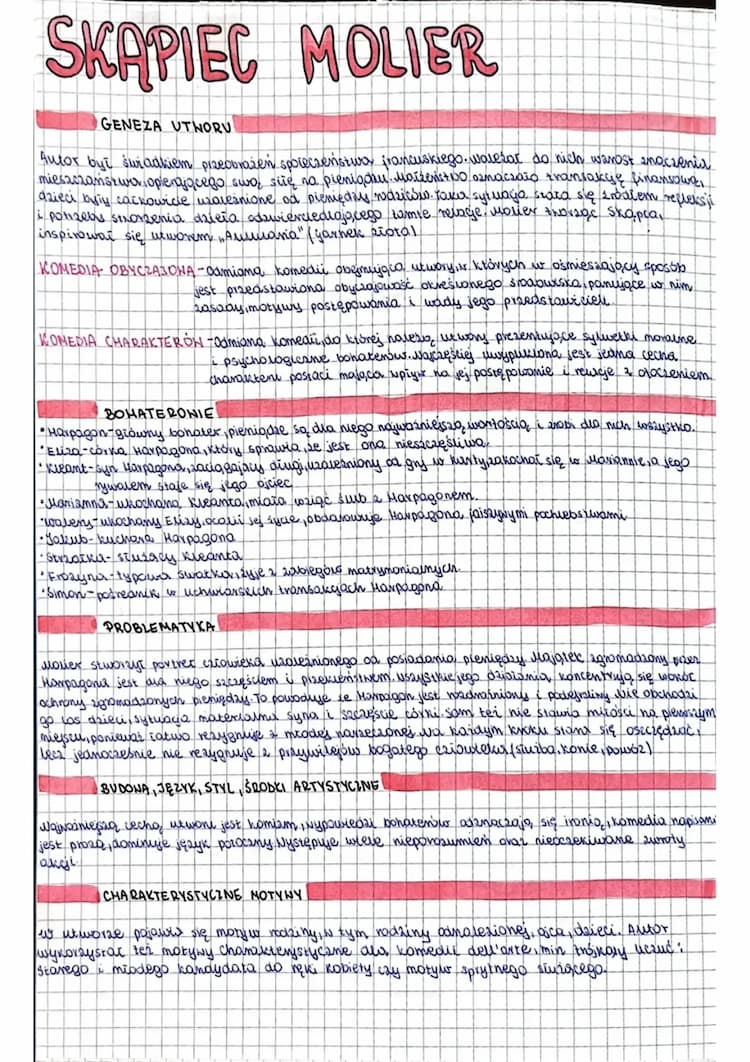 SKĄPIEC MOLIER
GENEZA UTWORU
Autor był świadkiem przeobrażeń społeczeństwa francuskiego. Należał do nich wzrost znaczenia
mieszczaństwa, opierającego swoją siłę na pieniądzu. Małżeństwo oznaczało transakcję finansową,
dzieci były całkowicie uzależnione od pieniędzy rodziców. Taka sytuacja stała się źródłem refleksji
i potrzeby stworzenia dzieła odzwierciedlającego tamte relacje. Molier tworząc Skąpca,
inspirował się utworem „Aulularia" (garnek złota)
KOMEDIA OBYCZAJOWA - odmiana komedii obejmująca utwory, w których w ośmieszający sposób
jest przedstawiona obyczajowość określonego środowiska, panujące w nim
zasady, motywy postępowania i wady jego przedstawicieli.
KOMEDIA CHARAKTERÓW - odmiana komedii, do której należą utwory prezentujące sylwetki moralne
i psychologiczne bohaterów. Najczęściej uwypuklona jest jedna cecha
charakteru postaci mająca wpływ na jej postępowanie i relacje z otoczeniem.
BOHATEROWIE
• Harpagon - główny bohater, pieniądze są dla niego najważniejszą wartością i zrobi dla nich wszystko.
• Eliza - córka Harpagona, który sprawia, że jest ona nieszczęśliwa.
• Kleant - syn Harpagona, zaciągający długi, uzależniony od gry w karty, zakochał się w Mariannie, a jego
rywalem staje się jego ojciec
• Marianna - ukochana Kleanta, miała wziąć ślub z Harpagonem.
• Walery - ukochany Elizy, ocalił jej życie, obdarowuje Harpagona fałszywymi pochlebstwami
• Jakub - kucharz Harpagona
• Strzałka - służący Kleanta
• Frozyna - typowa swatka, żyje z zabiegów matrymonialnych.
• Simon - pośrednik w lichwiarskich transakcjach Harpagona
PROBLEMATYKA
Molier stworzył portret człowieka uzależnionego od posiadania pieniędzy. Majątek zgromadzony przez
Harpagona jest dla niego szczęściem i przekleństwem. Wszystkie jego działania, koncentrują się wokół
ochrony zgromadzonych pieniędzy. To powoduje że Harpagon jest rozdrażniony i podejrzliwy. Nie obchodzi
go los dzieci, sytuacja materialna syna i szczęście córki. Sam też nie stawia miłości na pierwszym
miejscu, ponieważ łatwo rezygnuje z młodej narzeczonej. Na każdym kroku stara się oszczędzać,
lecz jednocześnie nie rezygnuje z przywilejów bogatego człowieka (służba, konie, powóz)
BUDOWA, JĘZYK, STYL, ŚRODKI ARTYSTYCZNE
Najważniejszą cechą utworu jest komizm, wypowiedzi bohaterów odznaczają się ironią, komedia napisana
jest prozą, dominuje język potoczny. Występuje wiele nieporozumień oraz nieoczekiwane zwroty
akcji
CHARAKTERYSTYCZNE MOTYWY
W utworze pojawia się motyw rodziny, w tym rodziny odnalezionej, ojca, dzieci. Autor
wykorzystał też motywy charakterystyczne dla komedii dell'arte, min trójkąty uczuć:
starego i młodego kandydata do ręki kobiety czy motyw sprytnego służącego.